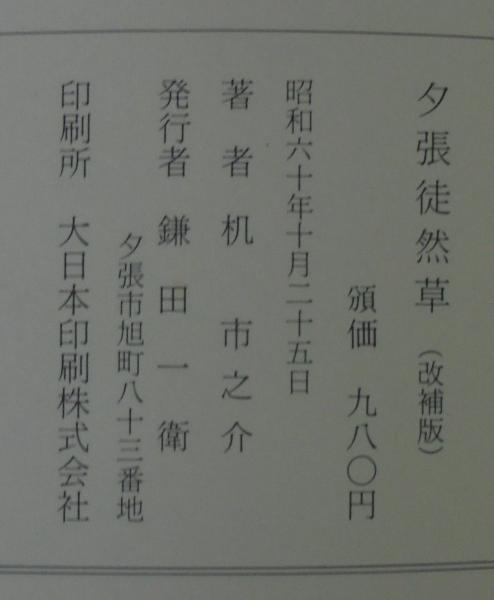 夕張徒然草（改補版）
頒価　九八〇円
昭和六十年十月二十五日
著者　机　市之介
発行者　鎌田一衛
夕張市旭町八十三番地
印刷所　大日本印刷株式会社